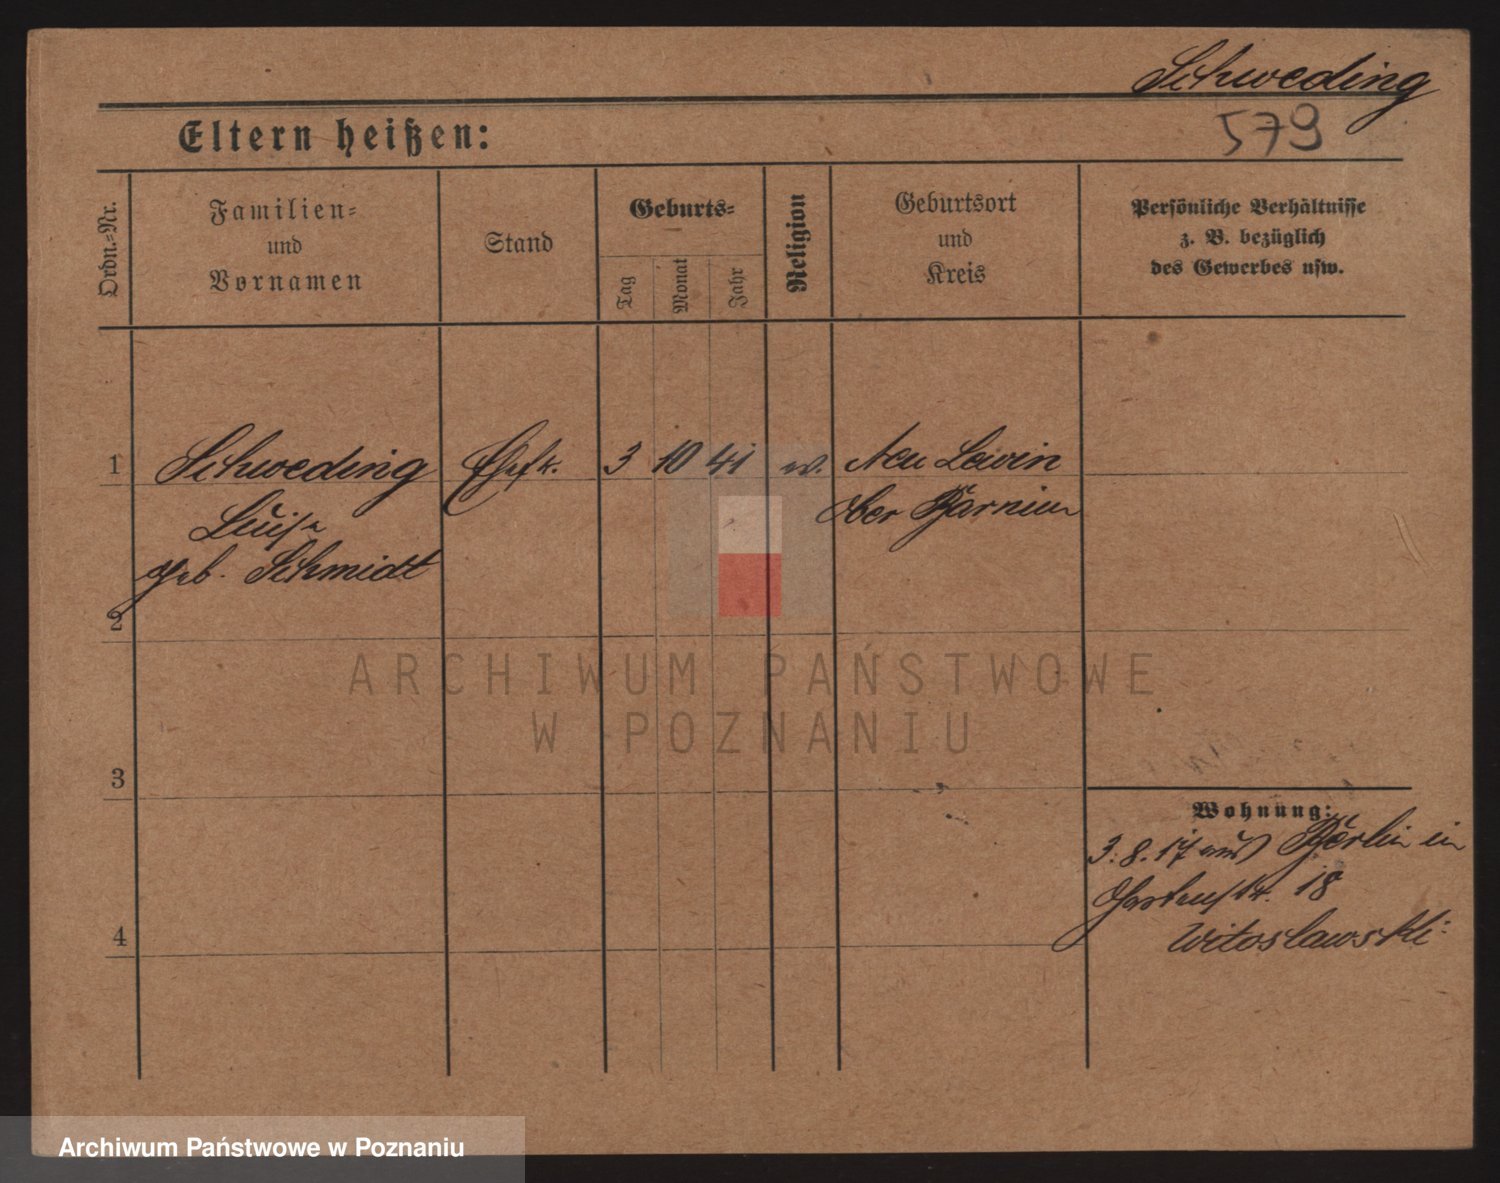 Schweding
579
Eltern heißen:
Ordn.-Nr.
Familien-
und
Vornamen
Stand
Geburts-
Tag
Monat
Jahr
Religion
Geburtsort
und
Kreis
Persönliche Verhältnisse
z. B. bezüglich
des Gewerbes usw.
1 Schweding 3 10 41 Neu Lewin
Luise Ober Barnim
geb. Schmidt
2
ARCHIWUM PAŃSTWOWE
W POZNANIU
3
Wohnung:
3.8.17 aus Berlin in
18
4
Witoslawski
Archiwum Państwowe w Poznaniu